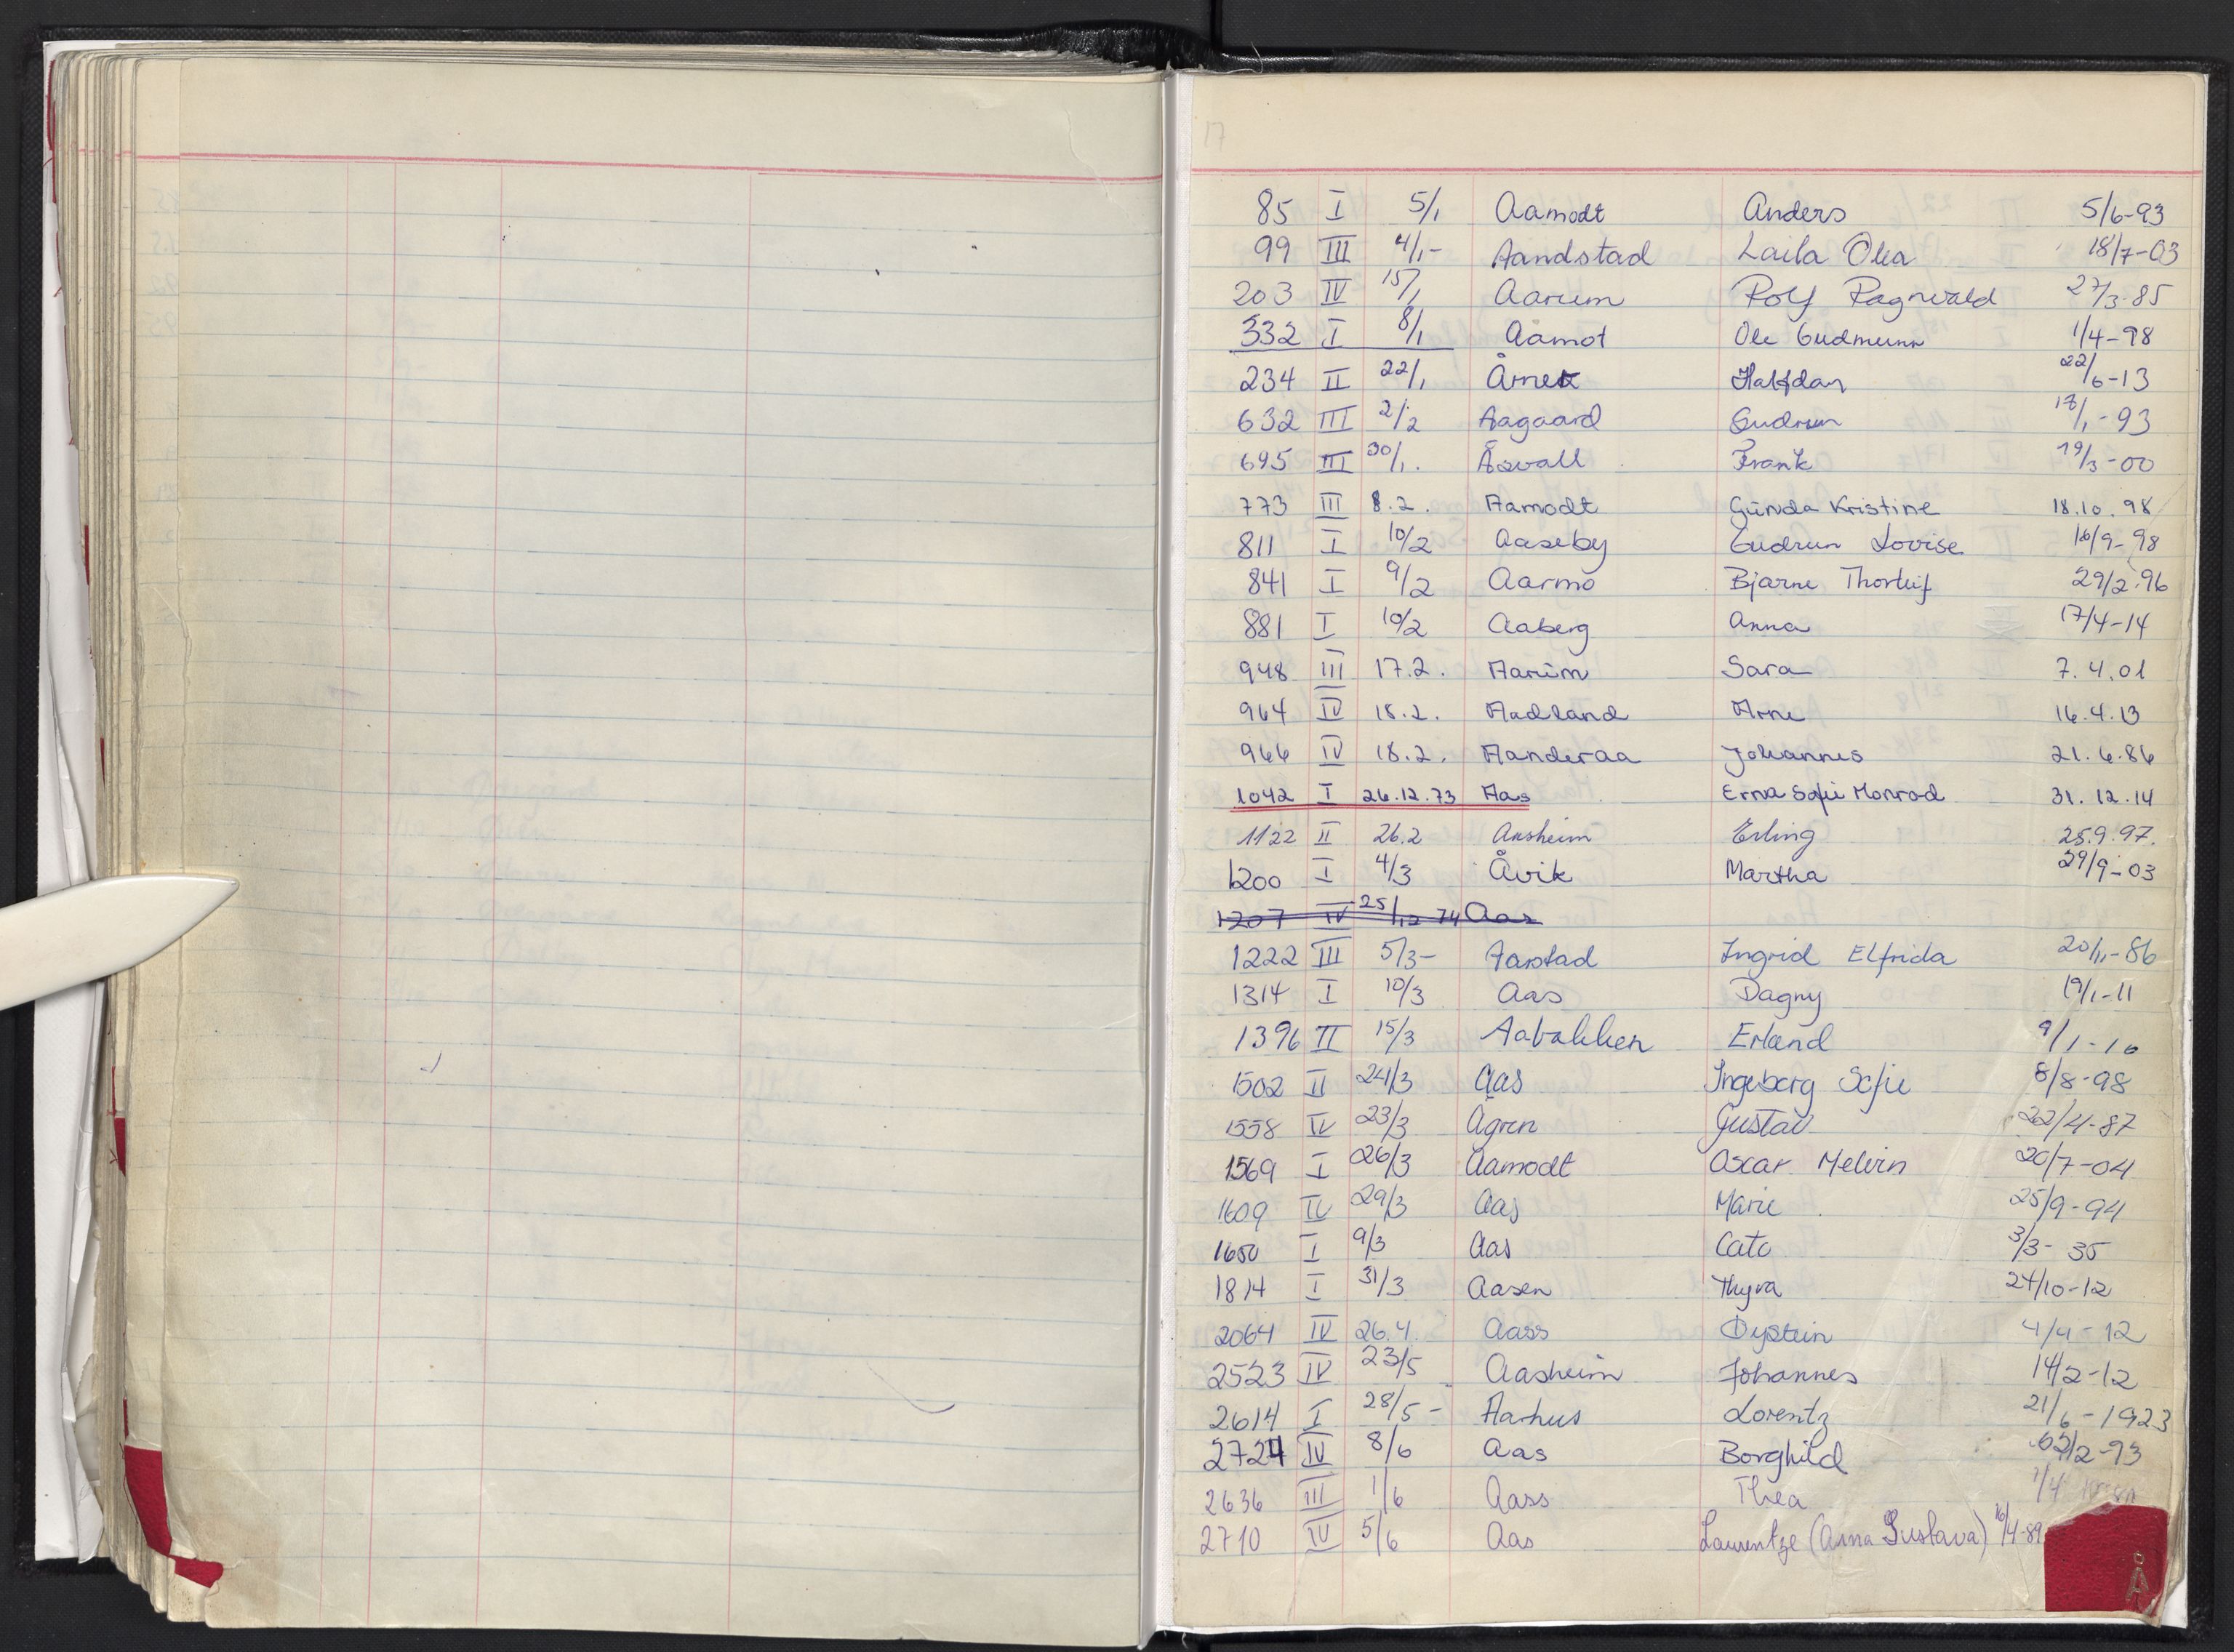 17
85 I 5/1 Aamodt Anders 5/6-93
99 III 4/1- Aandstad Laila Olea 18/7-03
203 IV 15/1 Aarum Rolf Ragnvald 27/3-85
332 I 8/1 Aamot Ole Gudmunn 1/4-98
234 II 22/1 Årnek Halfdan 22/6-13
632 III 2/2 Aagaard Gudrun 18/1-93
695 III 30/1. Åsvall Frank 19/3-00
773 III 8.2. Aamodt Gunda Kristine 18.10.98
811 I 10/2 Aaseby Gudrun Lovise 16/9-98
841 I 9/2 Aarmo Bjarne Thorleif 29/2.96
881 I 10/2 Aaberg Anna 17/4-14
948 III 17.2. Aarum Sara 7.4.01
964 IV 18.2. Aadland Arne 16.4.13
966 IV 18.2. Aanderaa Johannes 21.6.86
1042 I 26.12.73 Aas Erna Sofie Monrod 31.12.14
1122 II 26.2 Aasheim Erling 25.9.97.
1200 I 4/3 Åvik Martha 29/9-03
1207 IV 25/12 74 Aas
1222 III 5/3- Aarstad Ingrid Elfrida 20/11-86
1314 I 10/3 Aas Dagny 19/1-11
1396 II 15/3 Aabakken Erland 9/1-16
1502 II 24/3 Aas Ingeborg Sofie 8/8-98
1558 IV 23/3 Ågren Gustav 22/4-87
1569 I 26/3 Aamodt Oscar Melvin 20/7-04
1609 IV 29/3 Aas Marie 25/9-94
1650 I 9/3 Aas Cato 3/3-35
1814 I 31/3 Aasen Thyra 24/10-12
2064 IV 26.4. Aass Øystein 4/4-12
2523 IV 23/5 Aasheim Johannes 14/2-12
2614 I 28/5- Aarhus Lorentz 21/6-1923
2724 IV 8/6 Aas Borghild /2-93
2636 III 1/6 Aass Thea 1/4
2710 IV 5/6 Aas Laurentze (Anna Gustava) 16/4-89
Å